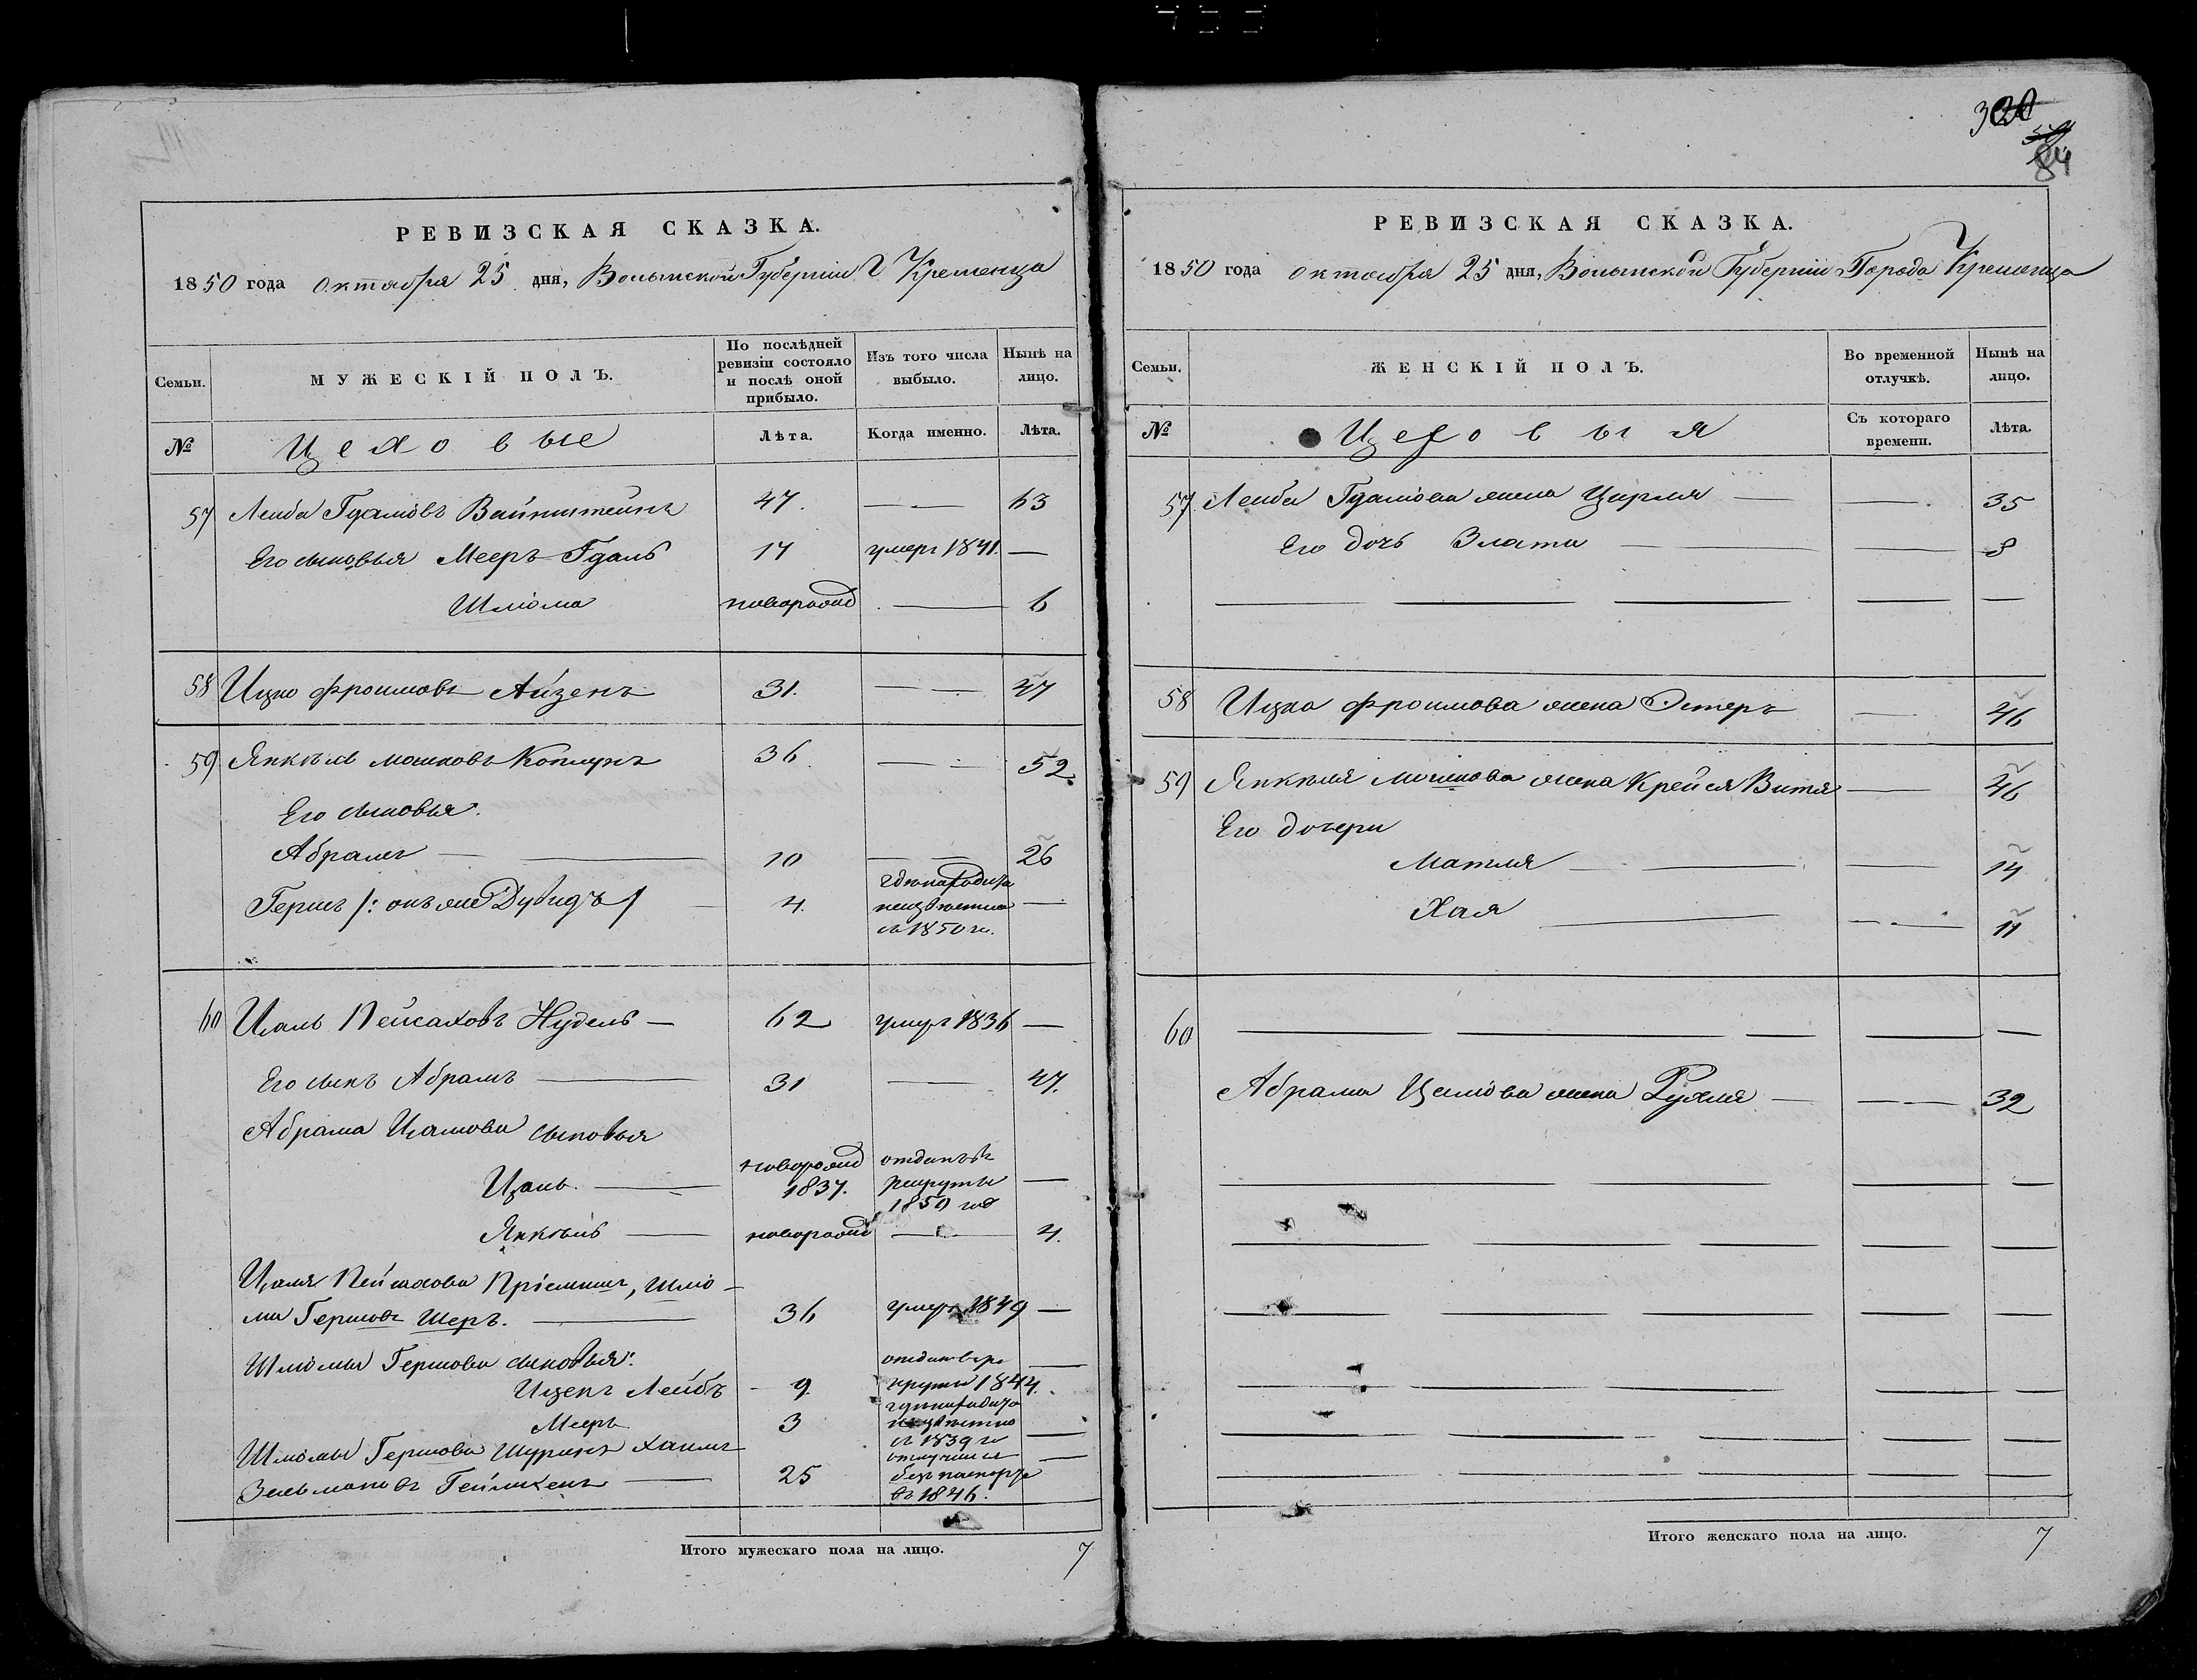 РЕВИЗСКАЯ СКАЗКА.
1850 года октября 25 дня, Волынской Губерніи Г Кременца
Семьи.
МУЖЕСКІЙ ПОЛЪ.
По послѣдней
ревизіи состояло
и послѣ оной
прибыло.
Изъ того числа
выбыло.
Нынѣ на
лицо.
№
Цеховые
Лѣта.
Когда именно.
Лѣта.
57 Лейба Гдалiовъ Вайнштейнъ 47. 63
Его сыновья Мееръ Гдаль 17 умеръ 1841.
Шліома новорожд 6
58 Ицко Фроимовъ Айзенъ 31. 47
59 Янкель Мошковъ 36 52
Его сыновья.
Абрамъ 10 26
Гершъ /: онъ же Дувидъ / 4. где находится
неизвѣстно
съ 1850 го.
60 Цаль Пейсаховъ Нудель 62 умеръ 1836
Его сынъ Абрамъ 31 47.
Абрама Цалiова сыновья
Цаль. новорожд
1837. отданъ въ
рекруты
1850 год
Янкель новорожд 4.
Цаля Пейсахова Пріемышъ, Шліо-
ма Гершовъ Шеръ. 36 умеръ 1849
Шліомы Гершова сыновья:
Ицекъ Лейбъ 9 отданъ въ ре
круты 1844.
Мееръ 3 где находится
неизвѣстно
съ 1839 го
Шліомы Гершова Шуринъ Хаимъ
Зельмановъ 25 отлучился
безъ паспорта
въ 1846.
Итого мужескаго пола на лицо. 7
84
РЕВИЗСКАЯ СКАЗКА.
1850 года октября 25 дня, Волынской Губерніи Города Кременца
Семьи.
ЖЕНСКІЙ ПОЛЪ.
Во временной
отлучкѣ.
Нынѣ на
лицо.
№
Цеховыя
Съ котораго
времени.
Лѣта.
57 Лейбы Гдалiова жена Цирля 35
Его дочь Злата 8
58 Ицка Фроимова жена Эстеръ 46
59 Янкеля Мошкова жена Крейся Витя 46
Его дочери
Матля 14
Хая 11
60
Абрама Цалiова жена Рухля 32
Итого женскаго пола на лицо. 7